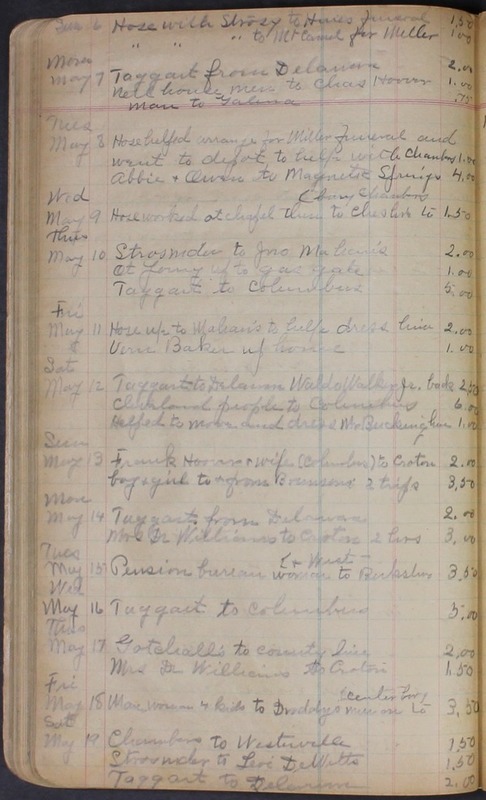 Sun 6 Hose with Strosz to Hines funeral 1,50
" " " to Mt Carmel for Miller 1 00
Mon
May 7 Taggart from Delaware 2.00
Nell house men to Chas Hoover 1.00
Man to Galena .75
Tues
May 8 Hose helped arrange for Miller Funeral and
went to depot to help with Chambers 1.00
Abbie + Owen to Magnetic Springs 4,00
Wed
Chambers
May 9 Hose worked at chapel then to 1.50
Thurs
May 10 Strosnider to Jno Mahan's 2.00
up to gas gate 1.00
Taggart to Columbus 5,00
Fri
May 11 Hose up to Mahan's to help dress him 2.00
& Vern Baker up home 1.00
Sat
May 12 Taggart to Delaware Waldo Walker Jr. back 2,50
Cleveland people to Columbus 6.00
Helped to move and dress Mr Buckingham 1.00
Sun
May 13 Frank Hoover + wife (Columbus) to Croton 2.00
boy + girl to + from 2 trips 3,50
Mon
May 14 Taggart from Delaware 2.00
Mrs Dr Williams to Croton 2 hrs 3,00
Tues
May 15 Pension bureau woman to Berkshire 3.50
Wed
May 16 Taggart to Columbus 5.00
Thurs
May 17 Gotchall's to county line 2,00
Mrs Dr Williams to Croton 1,50
Fri
Centerburg
May 18 Man, woman & kids to 3,50
Sat
May 19 Chambers to Westerville 1,50
Strosnider to Levi DeWitts 1,50
Taggart to Delaware 2,00